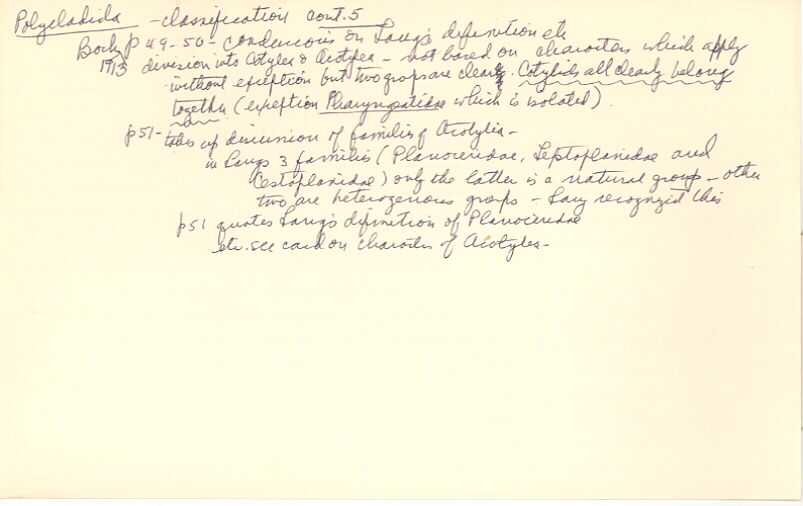 Polycladida - classification cont. 5
Bock p 49-50 - conclusions on Lang's definition etc
1913 division into Cotylea & Acotylea - not based on characters which apply
without exception but two groups are clear. Cotylids all clearly belong
together (exception Pharyngeatidae which is isolated).
p51- takes up discussion of families of Acotylia -
in Langs 3 families (Planoceridae, Leptoplanidae and
Cestoplanidae) only the latter is a natural group - other
two are heterogenous groups - Lang recognized this
p51 quotes Lang's difinition of Planoceridae
etc. see card on characters of Acotylea -